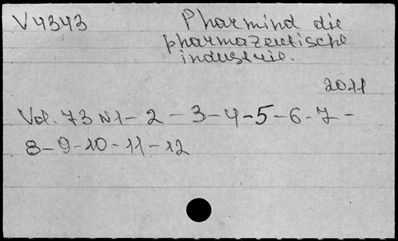 V 4343
Pharmind die
pharmazeutische
industrie.
2011
Vol. 73 N 1 - 2 - 3 - 4 - 5 - 6 - 7 -
8 - 9 - 10 - 11 - 12